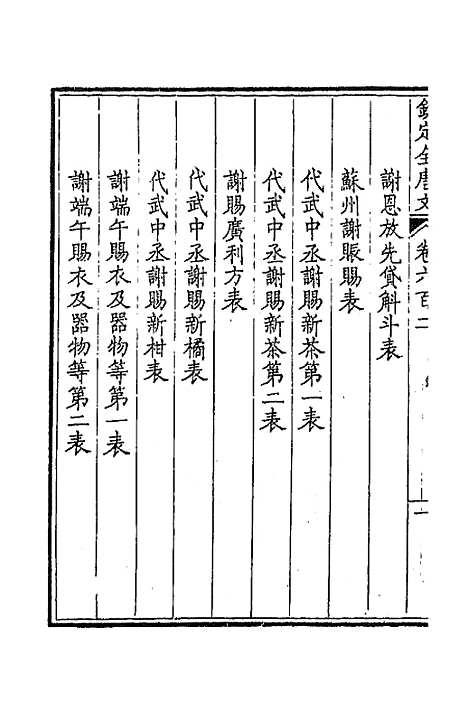 欽定全唐文 卷六百二
謝恩放先貸斛斗表
蘇州謝賑賜表
代武中丞謝賜新茶第一表
代武中丞謝賜新茶第二表
謝賜廣利方表
代武中丞謝賜新橘表
代武中丞謝賜新柑表
謝端午賜衣及器物等第一表
謝端午賜衣及器物等第二表